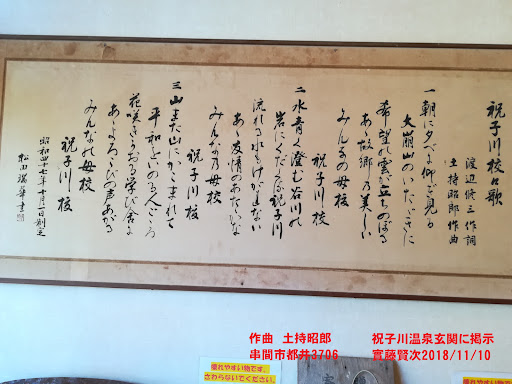 祝子川校々歌
渡辺修三 作詞
土持昭郎 作曲
一 朝に夕べに仰ぎ見る
大崩山のいたゞきに
希望の雲が立ちのぼる
あゝ故郷の美しい
みんなの母校
祝子川校
二 水青く澄む谷川の
岩にくだける祝子川
流れる水もけがれない
あゝ友情のあたゝかな
みんなの母校
祝子川校
三 山また山にかこまれて
平和をいのる
花咲きかおる学び舎に
あゝよろこびの声あがる
みんなの母校
祝子川校
昭和四十七年
松田
作曲 土持昭郎
串間市都井3706
祝子川温泉玄関に掲示
實藤賢次2018/11/10
壊れやすい物です。
さわらないでください。